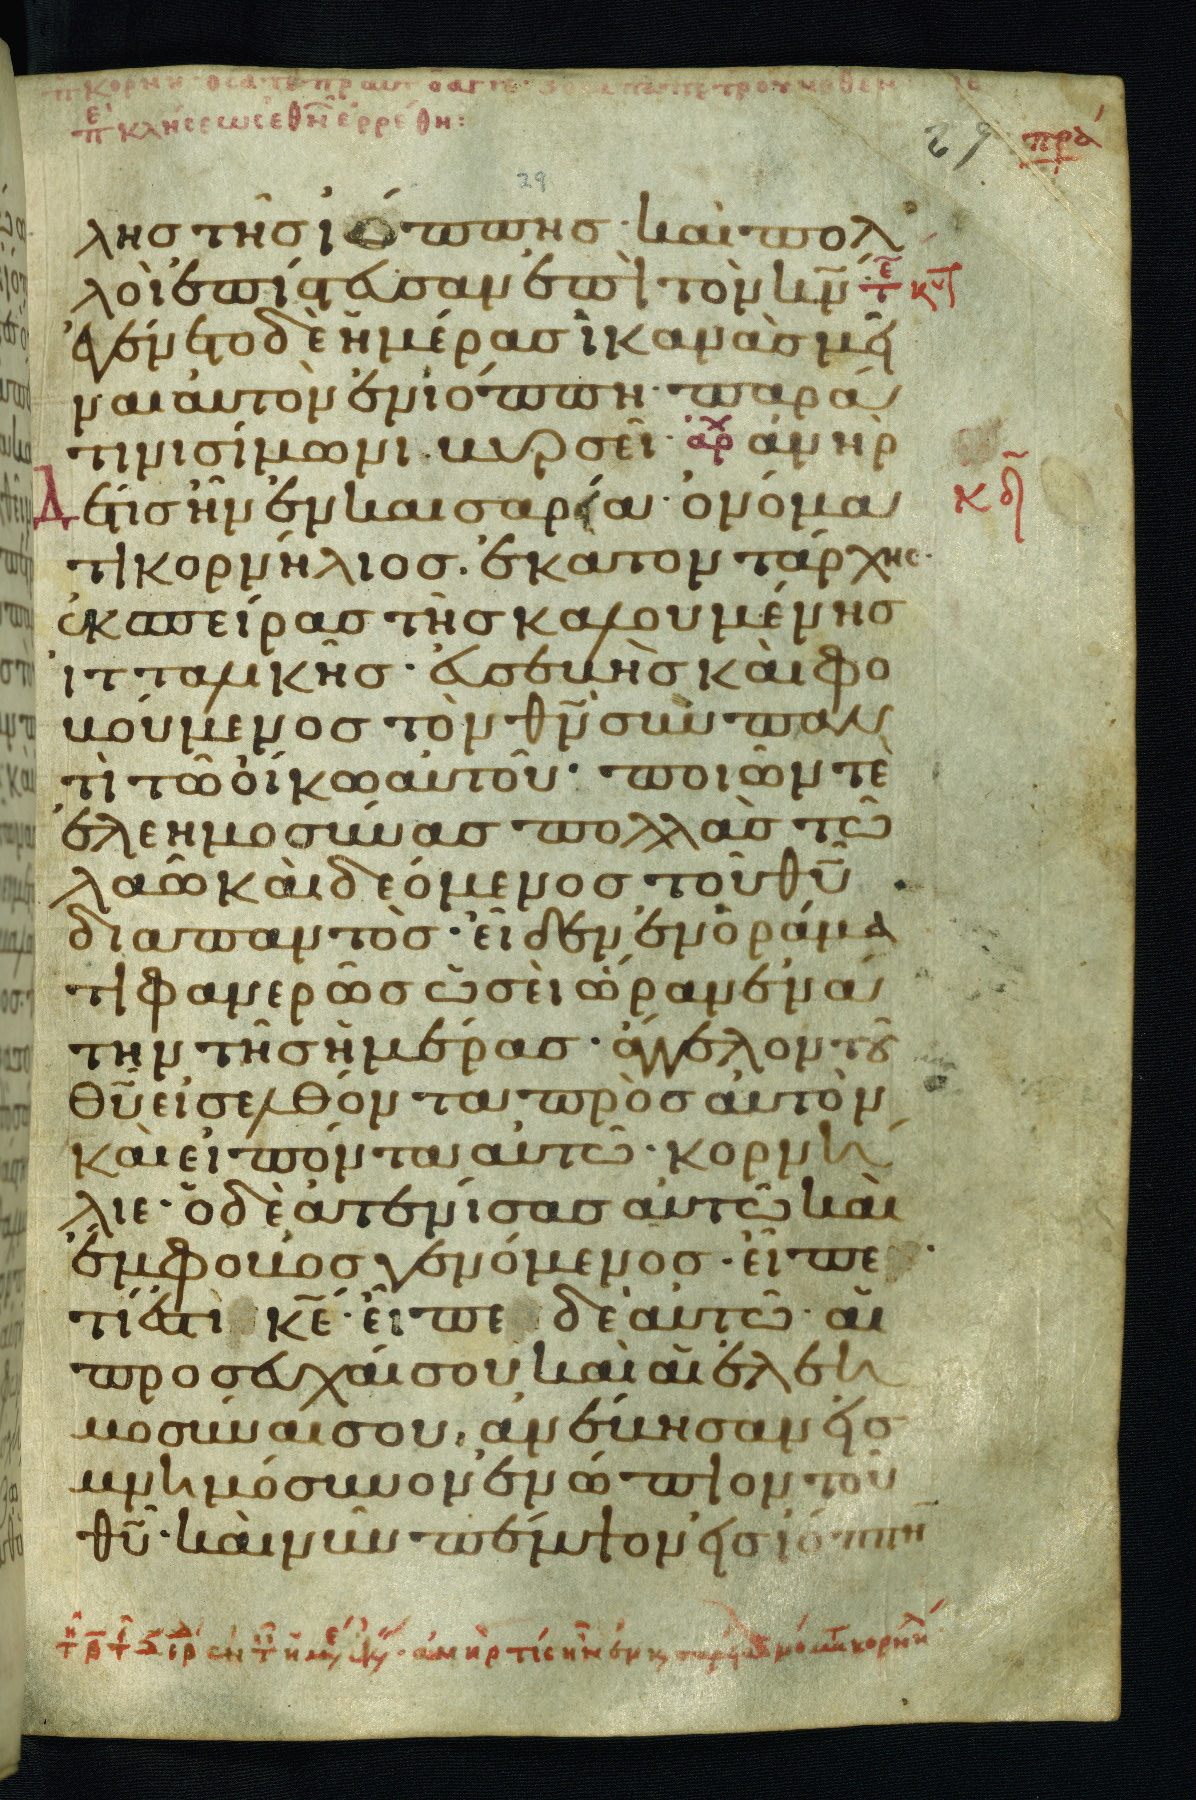 29
λησ τῆσ ἰόππησ· καὶ πολ
λοὶ ἐπίστευσαν ἐπὶ τὸν κ̅ν̅
ἐγένετο δὲ ἡμέρασ ἱκανὰσ μεῖ
ναι αὐτὸν ἐν ἰόππη· παρά
τινι σίμωνι βυρσεῖ· ἀνὴρ
δέ τισ ἦν ἐν καισαρεία· ὀνόμα
τι κορνήλιοσ· ἑκατοντάρχησ·
ἐκ σπείρασ τῆσ καλουμένησ
ἰτταλικῆσ· εὐσεβὴσ καὶ φο
βούμενοσ τὸν θ̅ν̅ σὺν παν
τὶ τῶ οἴκω αὐτοῦ· ποιῶν τὲ
ἐλεημοσύνασ πολλὰσ τῶ
λαῶ καὶ δεόμενοσ τοῦ θ̅υ̅
διαπαντὸσ· εἶδεν ἐν ὁράμα
τι φανερῶσ ὡσεὶ ὥραν ἐνά
την τῆσ ἡμέρασ· ἄγγελον τοῦ
θ̅υ̅ εἰσελθόντα πρὸσ αὐτὸν
καὶ εἰπόντα αὐτῶ· κορνή
λιε· ὁ δὲ ἀτενίσασ αὐτῶ καὶ
ἔμφοβοσ γενόμενοσ· εἶπε·
τί ἐστι κ̅ε̅· εἶπε δὲ αὐτῶ· αἱ
προσευχαί σου καὶ αἱ ἐλεη
μοσύναι σου, ἀνέβησαν εἰσ
μνημόσυνον ἐνώπιον τοῦ
θ̅υ̅· καὶ νῦν πέμψον εἰσ ἰόππην